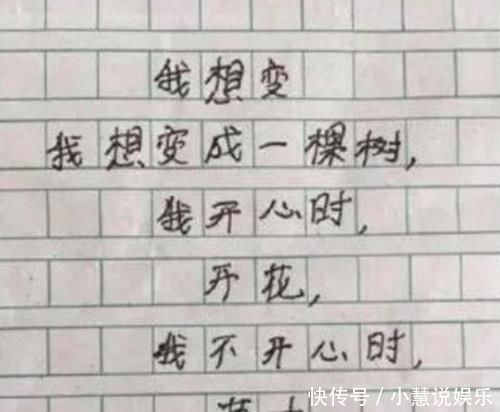 我想变
我想变成一棵树，
我开心时，
开花，
我不开心时，
快传号／小慧说娱乐